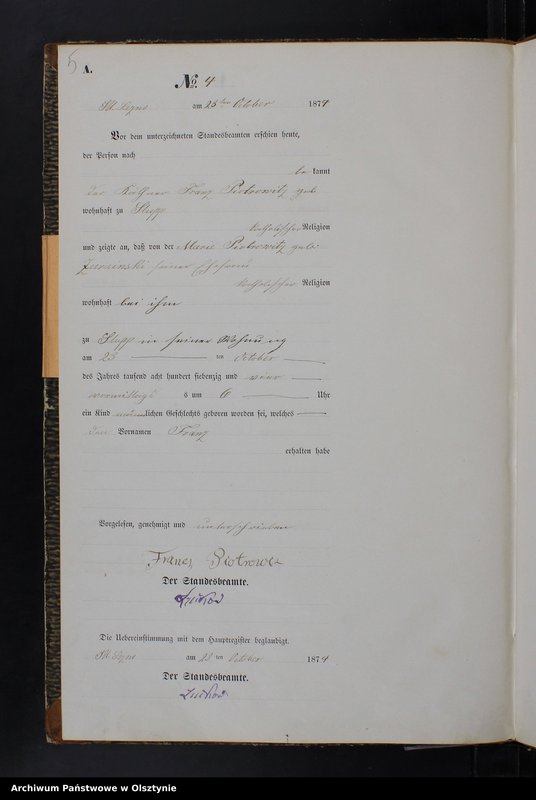 5
A.
No. 4
am 25ten October 1874
Vor dem unterzeichneten Standesbeamten erschien heute,
der Person nach
bekannt
der Käthner Franz Piotrowitz
wohnhaft zu Stupp
katholischer Religion
und zeigte an, daß von der Marie Piotrowitz geb.
seiner Ehefrau
katholischer Religion
wohnhaft bei ihm
zu Stupp in seiner Wohnung
am 23 ten October
des Jahres tausend acht hundert siebenzig und vier
vormittags um 6 Uhr
ein Kind männlichen Geschlechts geboren worden sei, welches
den Vornamen Franz
erhalten habe
Vorgelesen, genehmigt und unterschrieben
Der Standesbeamte.
Die Uebereinstimmung mit dem Hauptregister beglaubigt.
am ten October 1874
Der Standesbeamte.
Archiwum Państwowe w Olsztynie